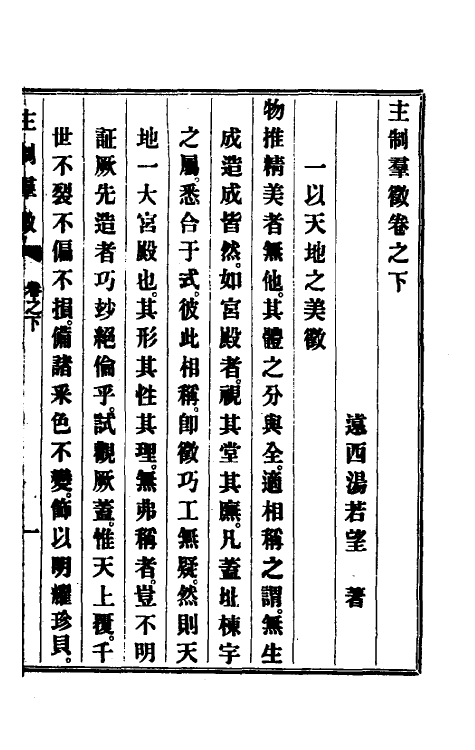 主制羣徵卷之下
遠西湯若望　著
一以天地之美徵
物推精美者無他。其體之分與全。適相稱之謂。無生
成造成皆然。如宮殿者。視其堂其廡。凡蓋址棟宇
之屬。悉合于式。彼此相稱。卽徵巧工無疑。然則天
地一大宮殿也。其形其性其理。無弗稱者。豈不明
証厥先造者巧妙絕倫乎。試觀厥蓋。惟天上覆。千
世不裂不偏不損。備諸采色不變。飾以明耀珍貝。
主制羣徵　卷之下　一